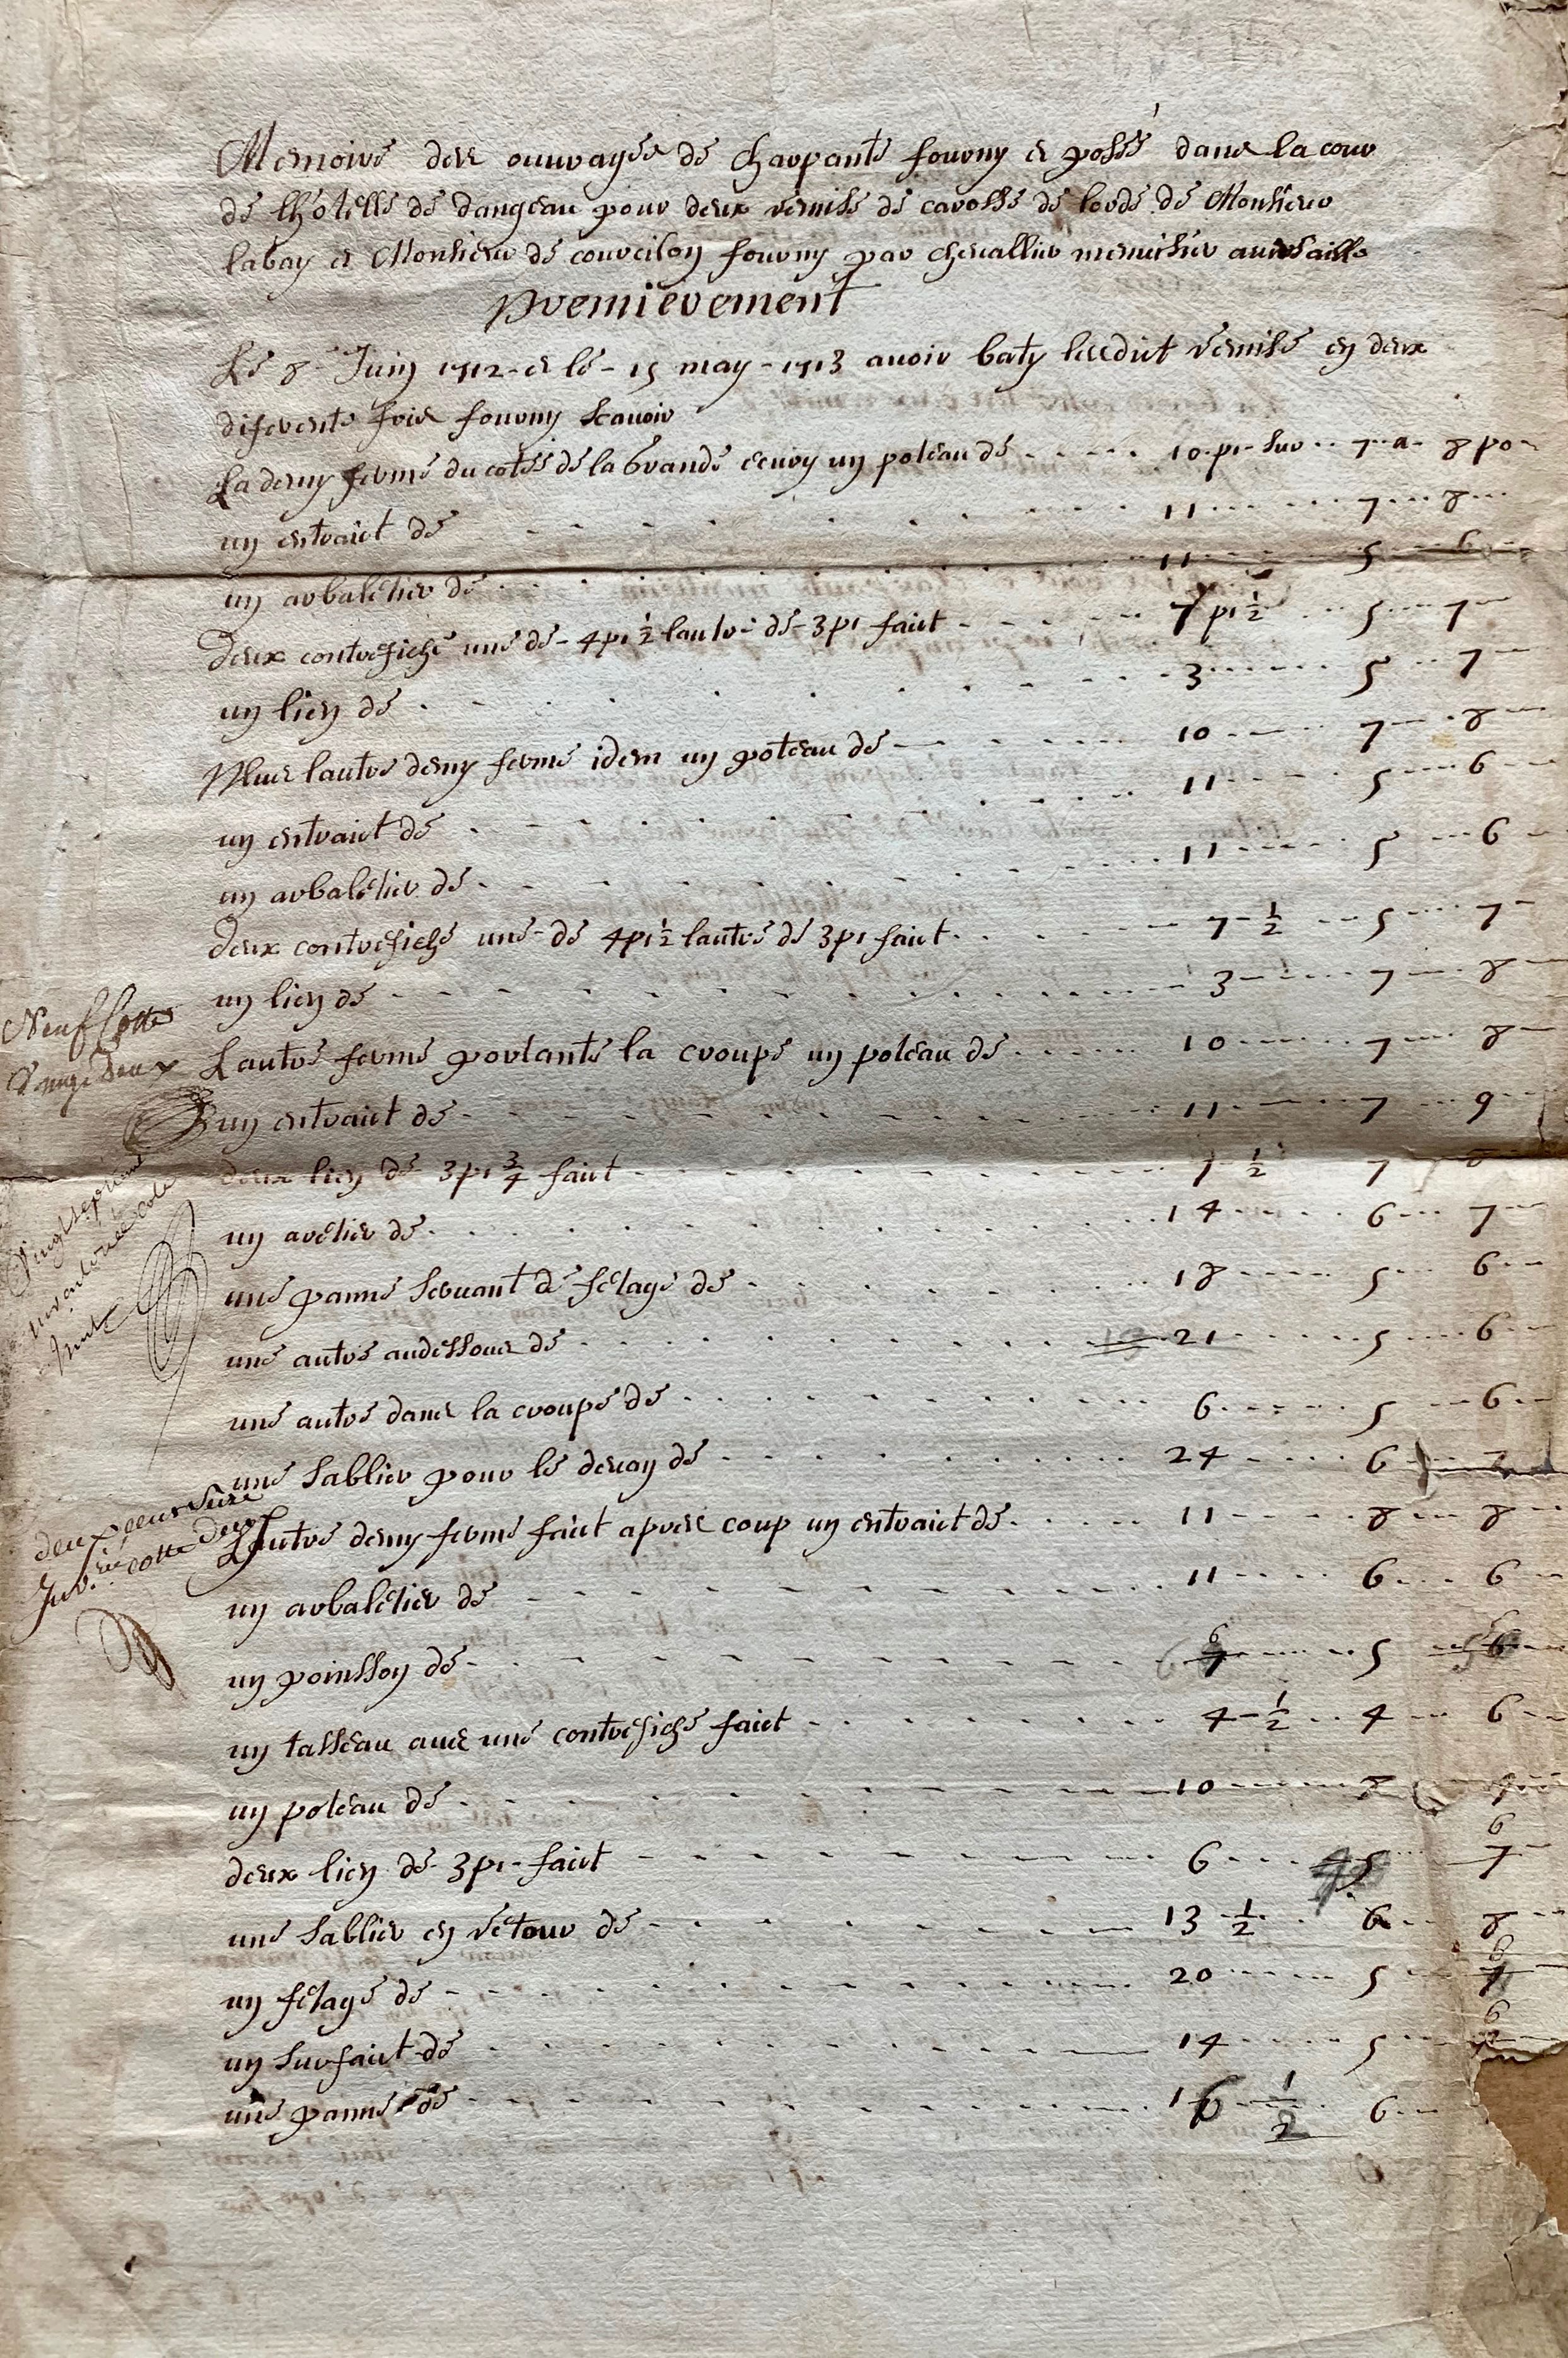 Memoire des ouurages de charpante fourny et posée dans la cour
de lhotelle de dangeau pour deux remise de carosse de lorde de Monsieur
labay et Monsieur de courcilon fourny par cheuallier menuisier auersaille
Premierement
Le 8 Juin 1712 - et le - 15 may - 1713 auoir baty lesdit remise en deux
diferente fois fourny scauoir
La demy ferme du cotée de la Grande ecury un poteau de 10 pi sur 7 a 8 po
un entrait de 11 7 8
un arbalétier de 11 5 6
deux contrefiche une de - 4 pi ½ lautre de - 3 pi fait 7 pi ½ 5 7
un lien de 3 5 7
Plus lautre demy ferme idem un poteau de 10 7 8
un entrait de 11 5 6
un arbalétier de 11 5 6
deux contrefiche une - de 4 pi ½ lautre de 3 pi fait 7 - ½ 5 7
un lien de 3 7 8
Neuf Cotte
Lautre ferme portante la croupe un poteau de 10 7 8
un entrait de 11 7 9
deux lien de 3 pi ¾ fait 7 ½ 7 8
un arétier de 14 6 7
Vingt septieme
une panne seruant de fétage de 18 5 6
une autre audessous de 21 5 6
une autre dans la croupe de 6 5 6
une sablier pour le deuan de 24 6 7
Lautre demy ferme fait apres coup un entrait de 11 8 8
un arbalétier de 11 6 6
deux
cotte
un poinsson de 6 7 5 6
un tasseau auec une contrefiche fait 4 - ½ 4 6
un poteau de 10 8
deux lien de - 3 pi - fait 6 5 6 7
une sablier en retour de 13 ½ 6 8
un fétage de 20 5 6 7
un surfait de 14 5 6
une panne de 16 ½ 6